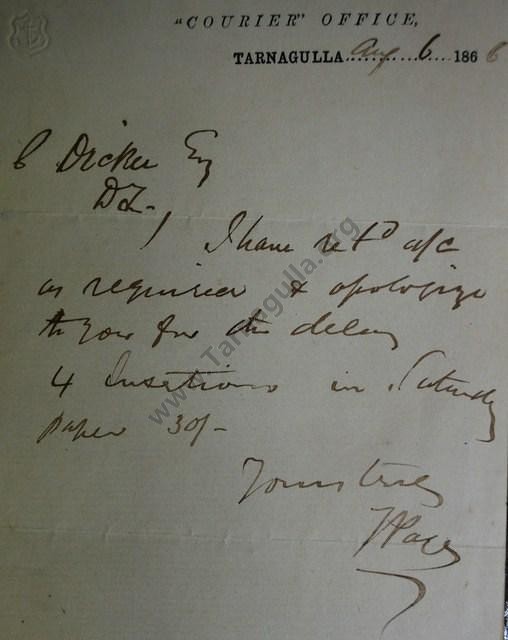 "COURIER" OFFICE,
TARNAGULLA Aug 6 1866
C Dicker Esq
DL,
I have retd a/c
as required & apologize
to you for the delay
4 Insertions in Saturday
paper 30/-
Yours truly
www.Tarnagulla.org